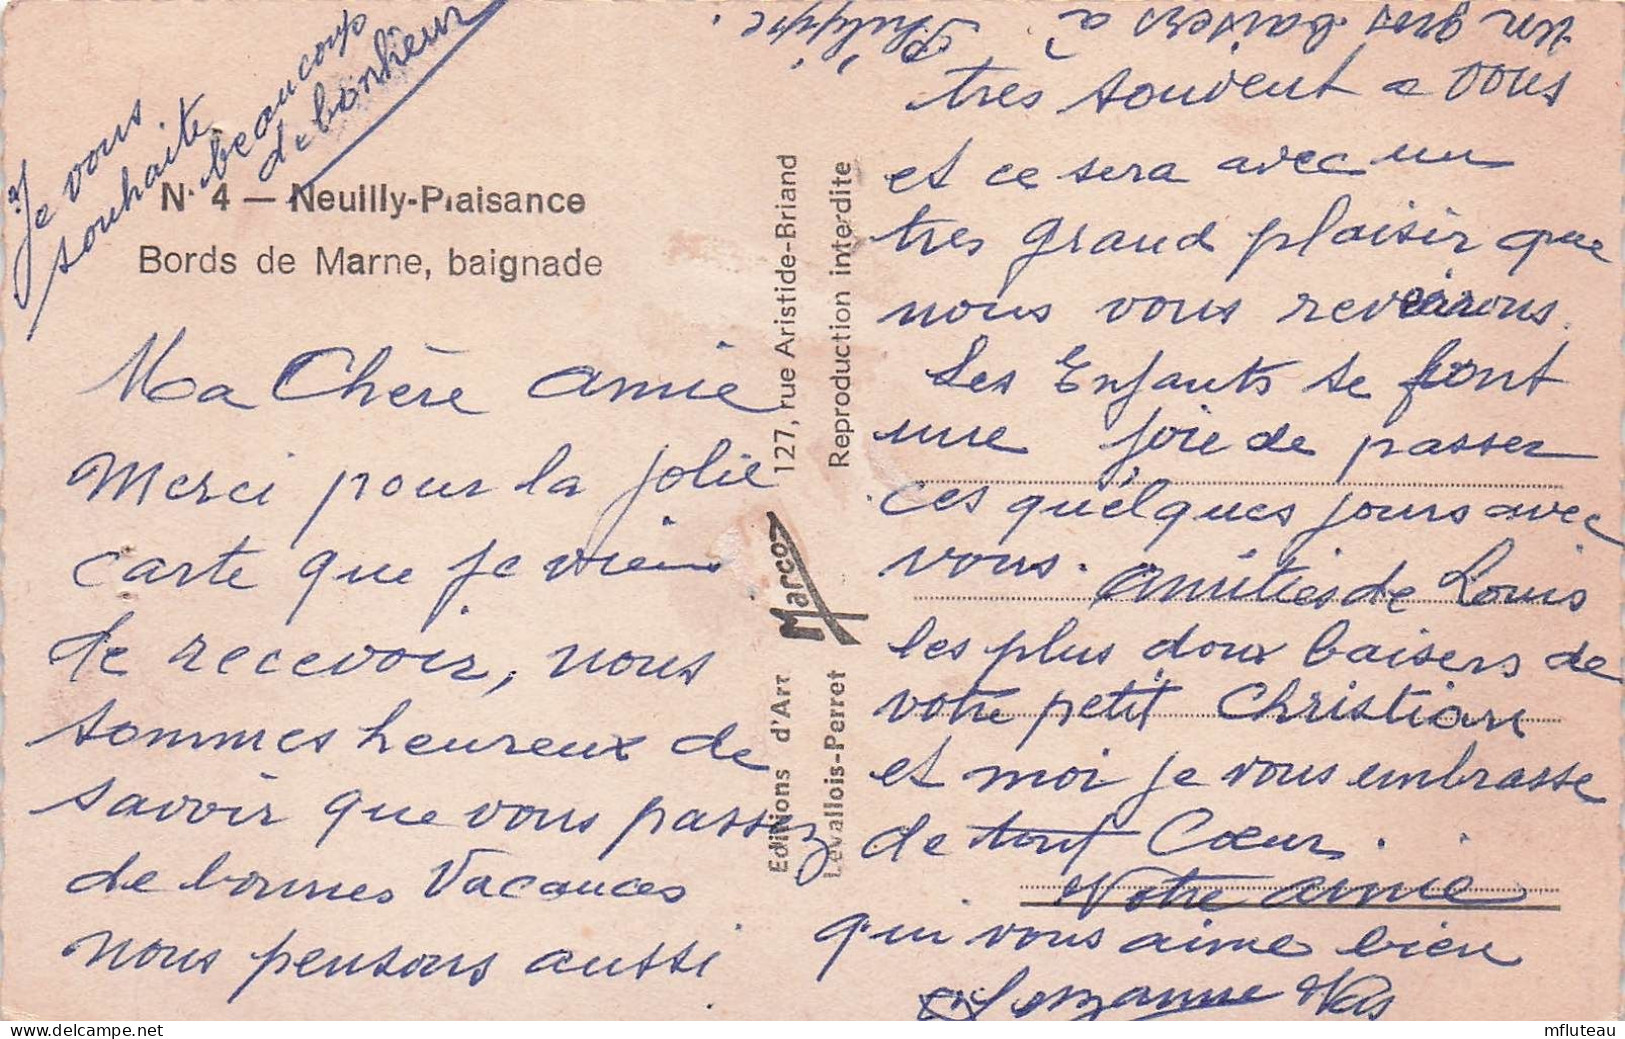 Je vous
souhaite
beaucoup
de bonheur
N° 4 — Neuilly-Plaisance
Bords de Marne, baignade
Ma Chère amie
Merci pour la jolie
carte que je viens
de recevoir, nous
sommes heureux de
savoir que vous passez
de bonnes Vacances
nous pensons aussi
Editions d'Art Marco 127, rue Aristide-Briand
Levallois-Perret Reproduction interdite
très souvent a vous
et ce sera avec un
tres grand plaisir que
nous vous reverrons.
Les Enfants se font
une joie de passer
ces quelques jours avec
vous. amitiés de Louis
les plus doux baisers de
votre petit Christian
et moi je vous embrasse
de tout Cœur.
Votre amie
qui vous aime bien
Suzanne
un gros baisers à
Philippe.
mfluteau